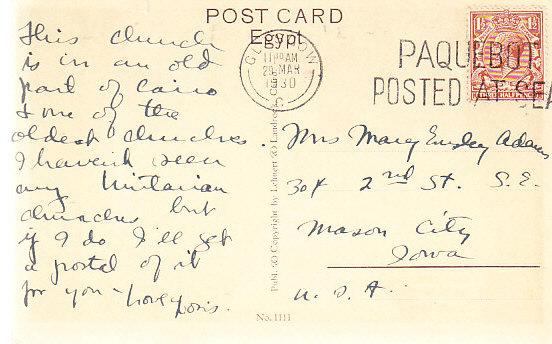 POST CARD
Egypt
This church
is in an old
part of Cairo
& one of the
oldest churches.
I haven't seen
any Unitarian
churches but
if I do I'll get
a postal of it
for you - Love
Doris.
GLASGOW
11 AM
MAR
1930
PAQUEBOT
POSTED AT SEA
1½
Mrs Mary Emsley Adams
304 2nd St. S.E.
Mason City
Iowa
U.S.A.
Publ. & Copyright by Lehnert & Landrock
No. 1111